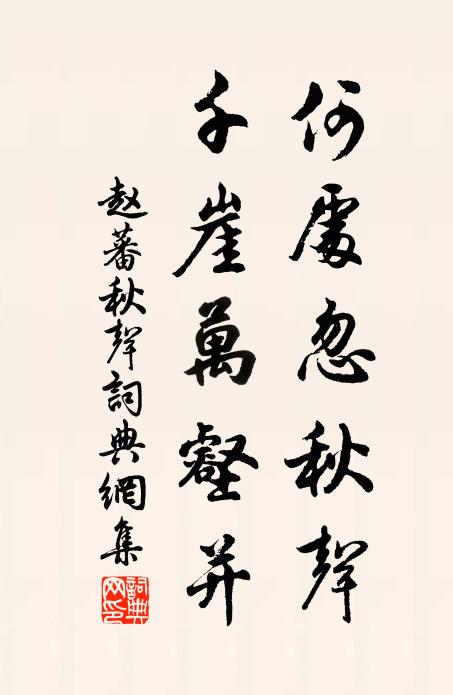 何處忽秋聲
千崖萬壑并
赵蕃秋聲詞典網集
詞典
网印